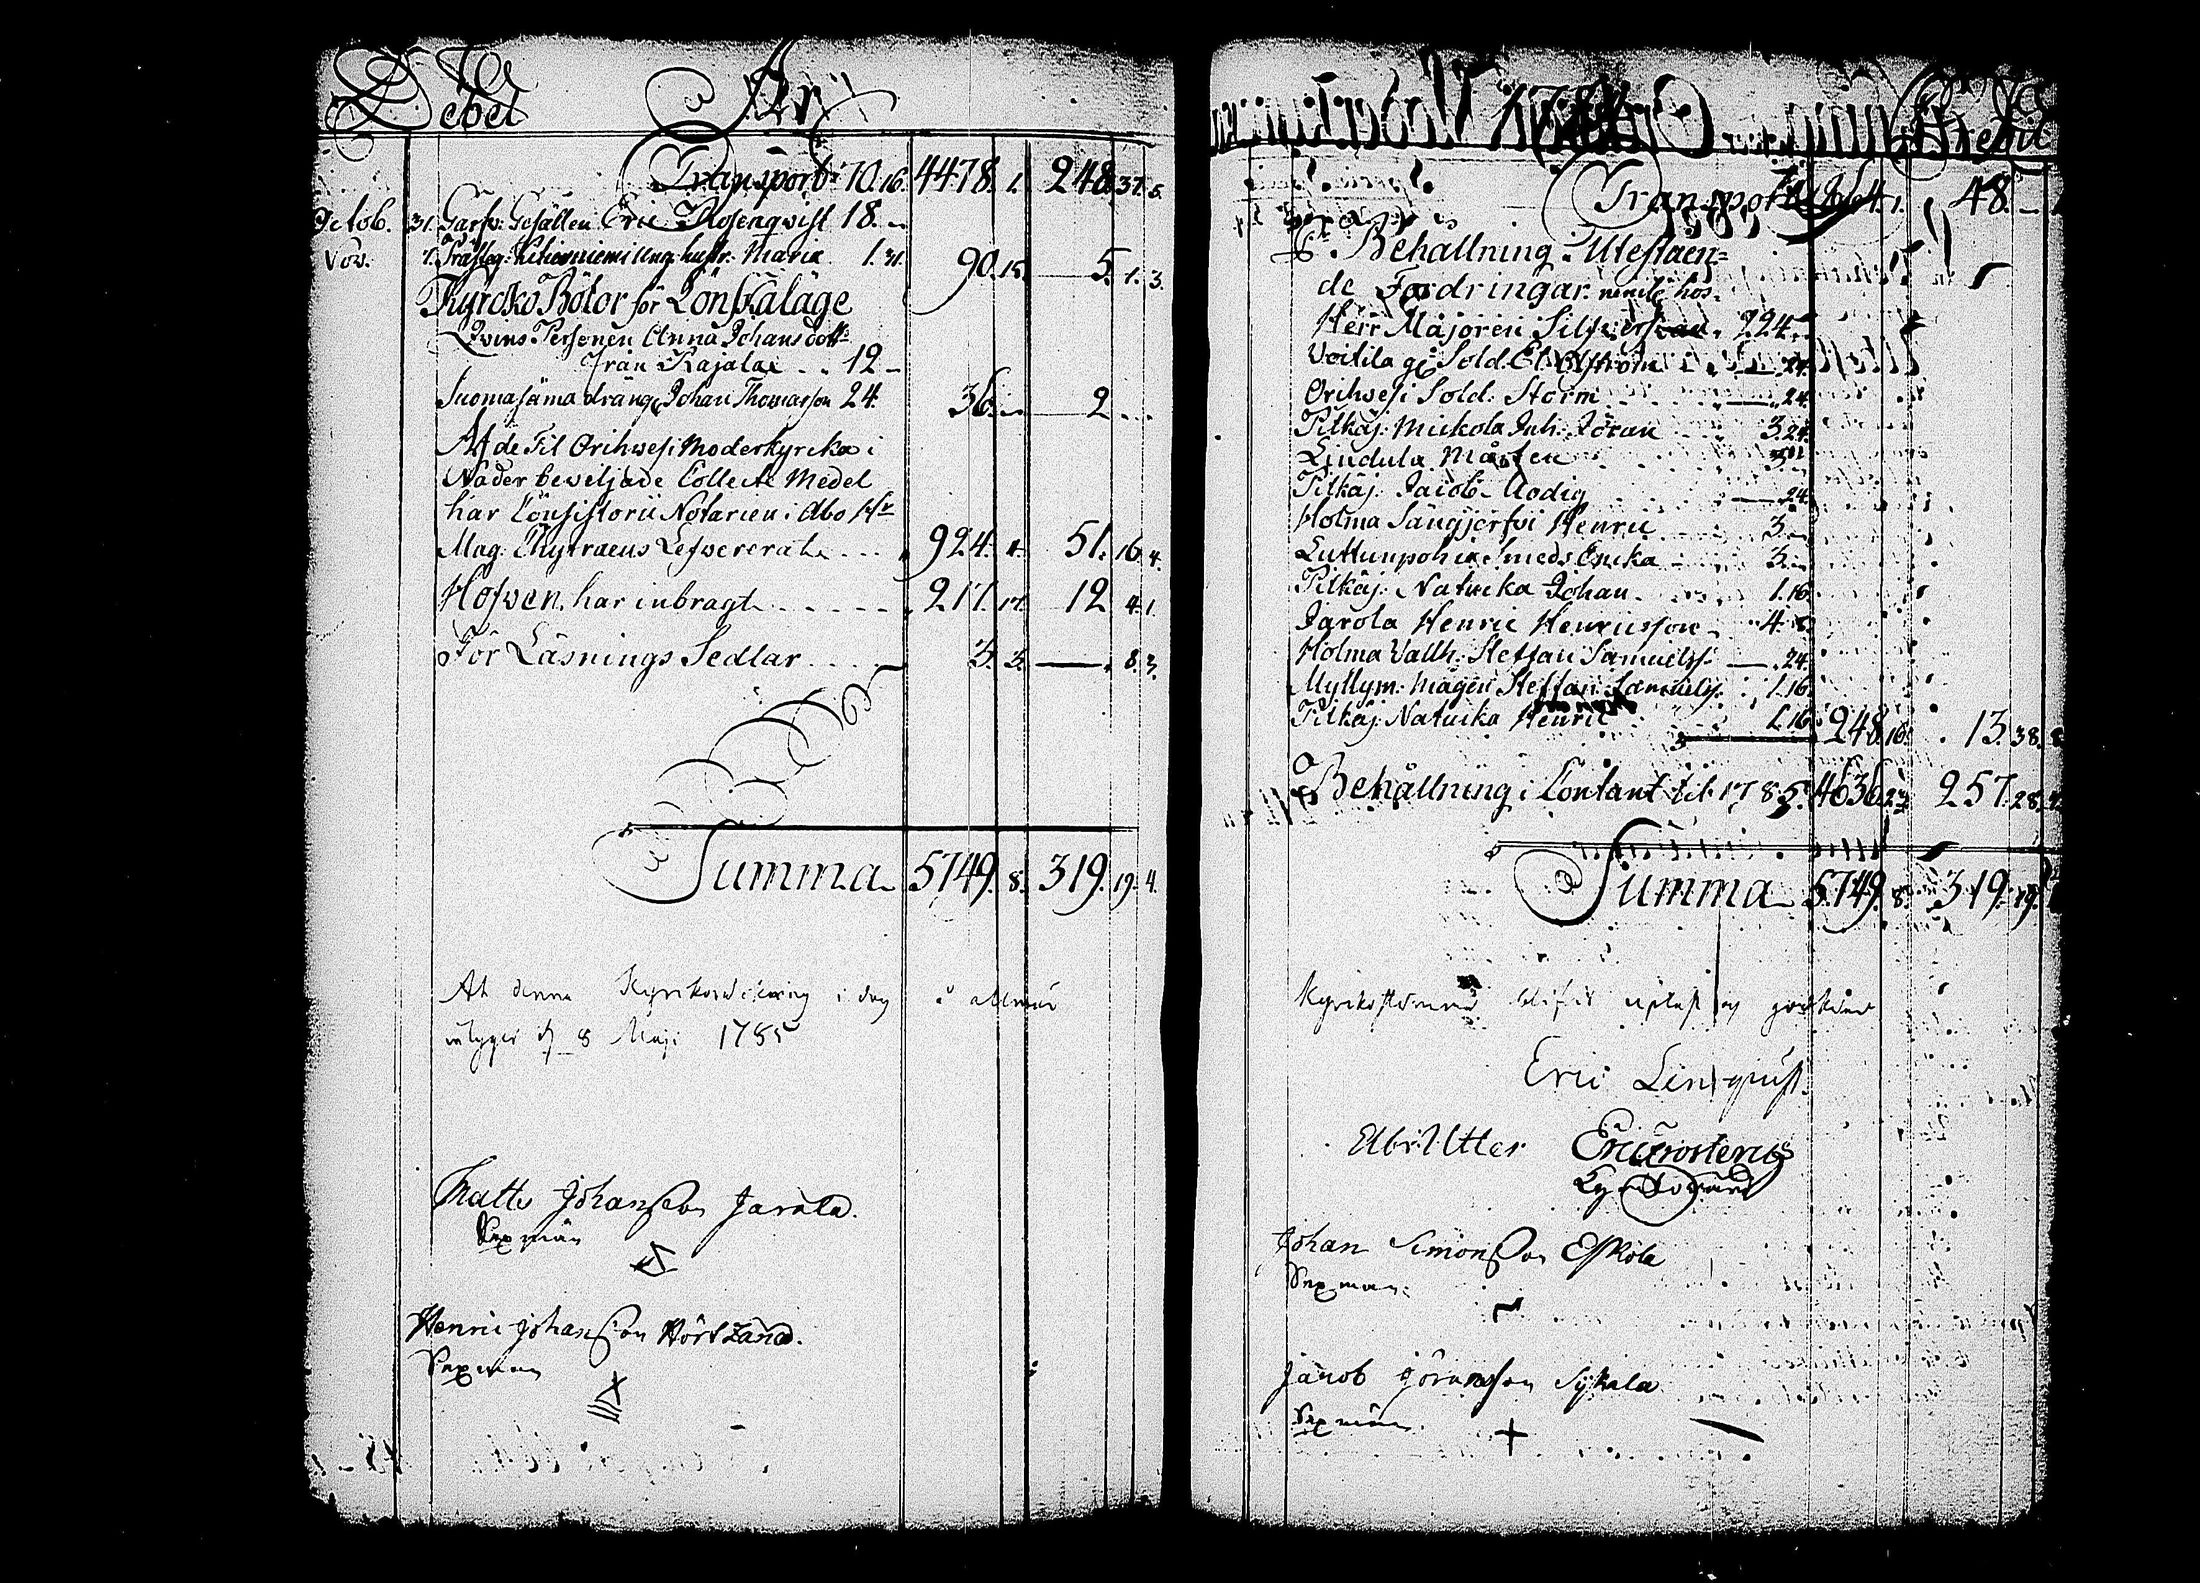 Debet År
Transport 70.16. 4478. 1. 248. 37. 5.
Octob. 31. Garfv: Gesällen Eric Rosenqvist 18. –
Nov. 7. hustr. Maria 1. 31. 90. 15. 5. 1. 3.
Kyrcko Böter för Lönskaläge
Qvins Personen Anna Johansdottr
från Kajala . . 12 –
Suomasäma dräng Johan Thomasson 24. 36. – 2 . –
Af de Til Orihwesi Moderkyrcka i
Nåder beviljade Collecte Medel
har Consistorii Notarien i Åbo Hr
Mag: Thytraeus Lefvererat . . . 924. 4. 51. 16. 4.
Hofven har inbragt . . . . . . 217. 17. 12. 4. 1.
För Läsnings Sedlar . . . . 3. 3. — 8. 3.
Summa 5749. 8. 319. 19. 4.
At denna Kyrkoräkning i dag i allmän
intygas d. 8 Maji 1785
Matts Johansson Jarala.
Sexman
Henric Johansson
Sexman
Credit
Transport 864. 1. 48. –
Behållning i Utestaen-
de Fordringar nemln hos
Herr Majoren 224.
Voitila Sold. – 24.
Orihwesi Sold: Storm – 24.
Pitkäj: Mickola Inh: Jöran 3. 24.
Lindula Mårten
Pitkäj: Jacob – 24.
Holma Sångjerfvi Henric 3. –
Smeds Enka 3. –
Pitkäj: Natucka Johan 1. 16.
Jarola Henric Henricsson 4. 8.
Holma Vallh: Steffan Samuelss: — 24.
Myllym: mågen Steffan Samuelss: 1. 16.
Pitkäj: Natucka Henric 1. 16. 248. 16. 13. 38.
Behållning i Contant til 1785. 4636. 257. 28.
Summa 5749. 8. 319. 19.
Kyrkostämma blifvit upläst og godkänd
Eric Lenqvist.
Johan Simonsson Eskola
Sexman.
Jacob Göransson Sykala
Sexman.